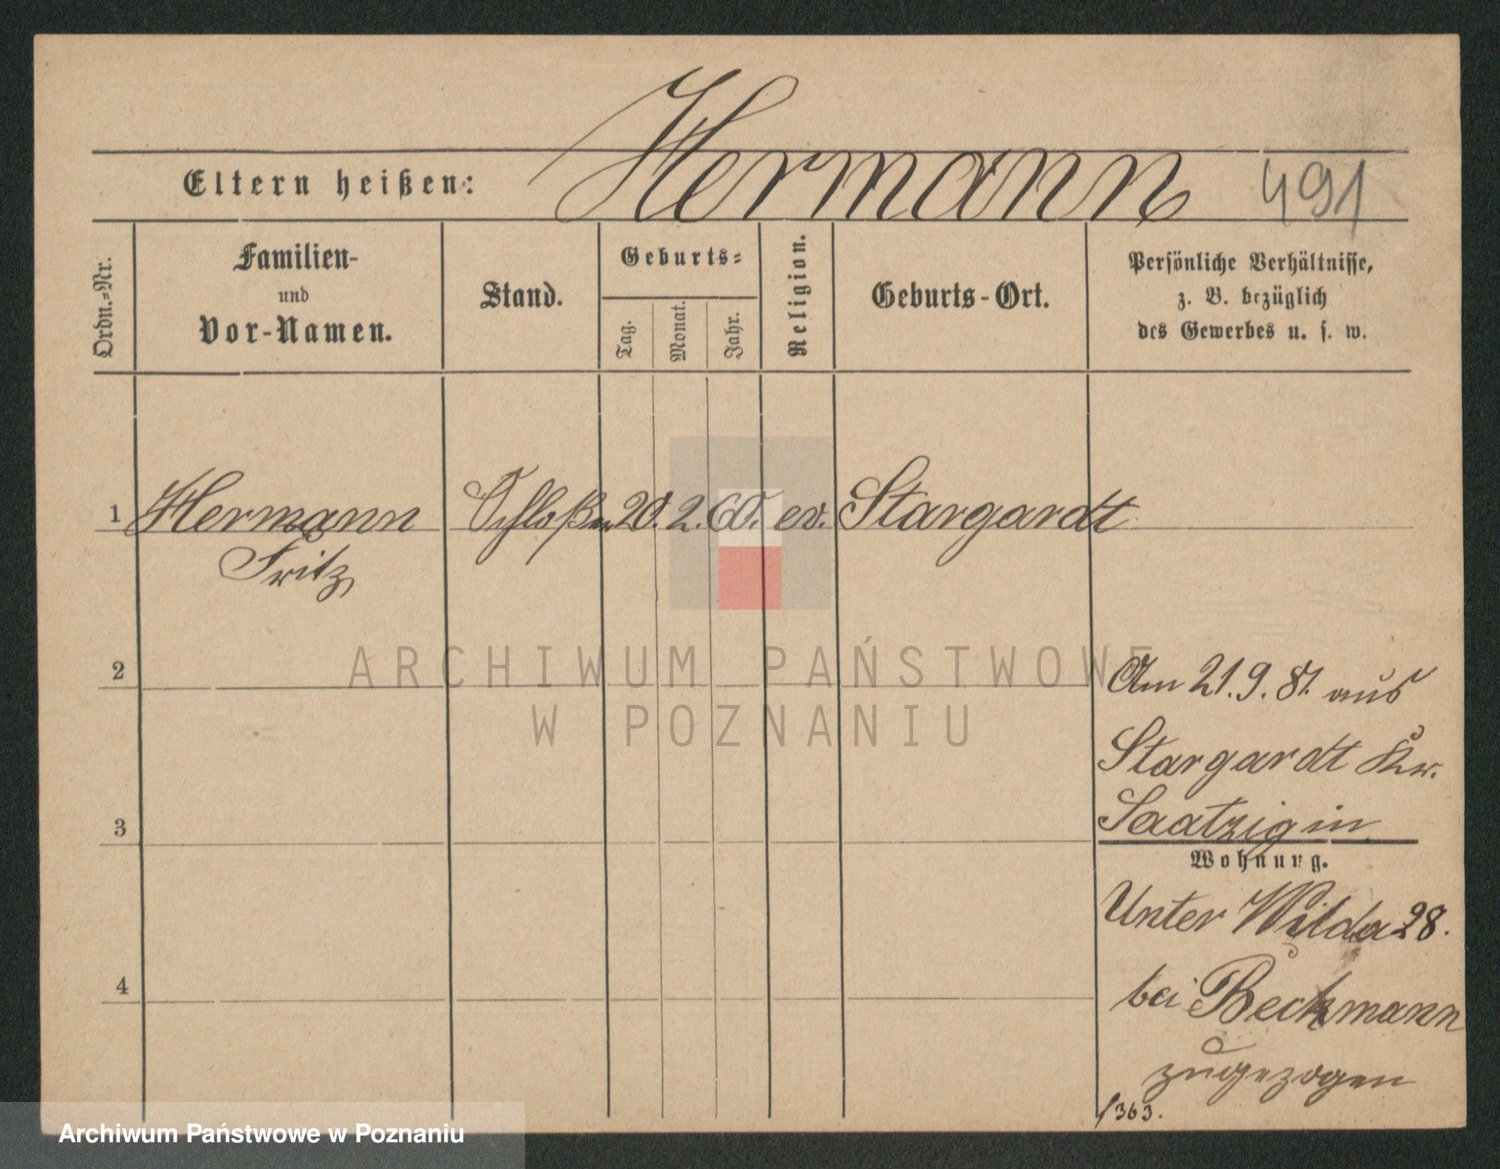 Hermann
491
Eltern heißen:
Ordn.=Nr.
Familien-
und
Vor-Namen.
Stand.
Geburts=
Tag.
Monat.
Jahr.
Religion.
Geburts-Ort.
Persönliche Verhältnisse,
z. B. bezüglich
des Gewerbes u. s. w.
1 Hermann Schloßer 20. 2. 60. ev. Stargardt
Fritz
2
ARCHIWUM PAŃSTWOWE
W POZNANIU
Am 21. 9. 81. aus
Stargardt Kr.
3
Saatzig in
Wohnung.
Unter Wilda 28.
4
bei Beckmann
zugezogen
/363.
Archiwum Państwowe w Poznaniu